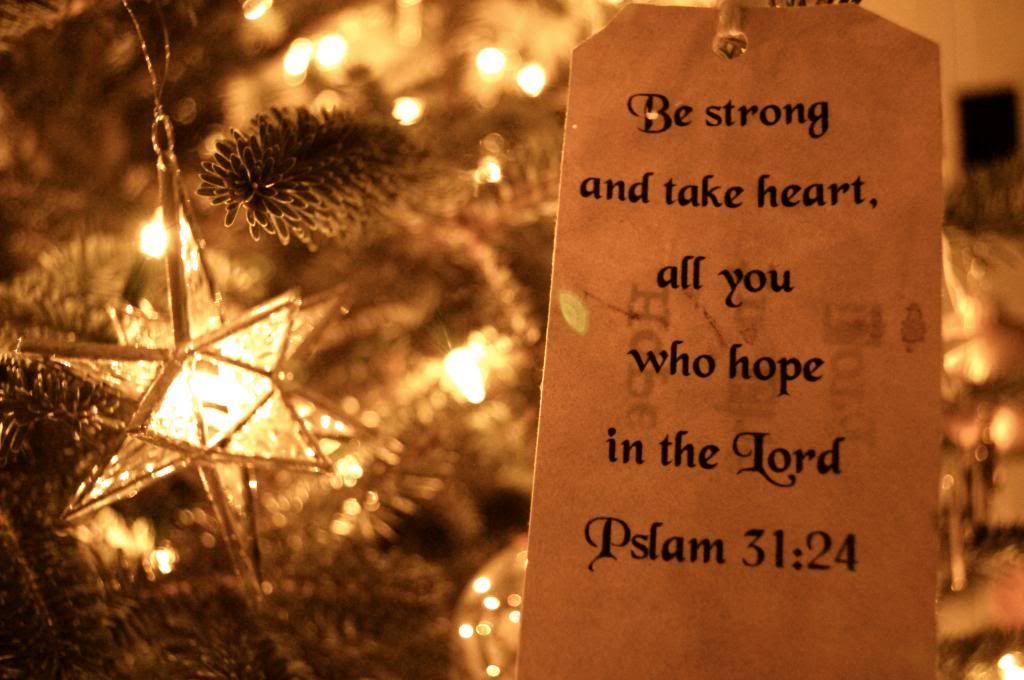 Be strong
and take heart,
all you
who hope
in the Lord
Pslam 31:24